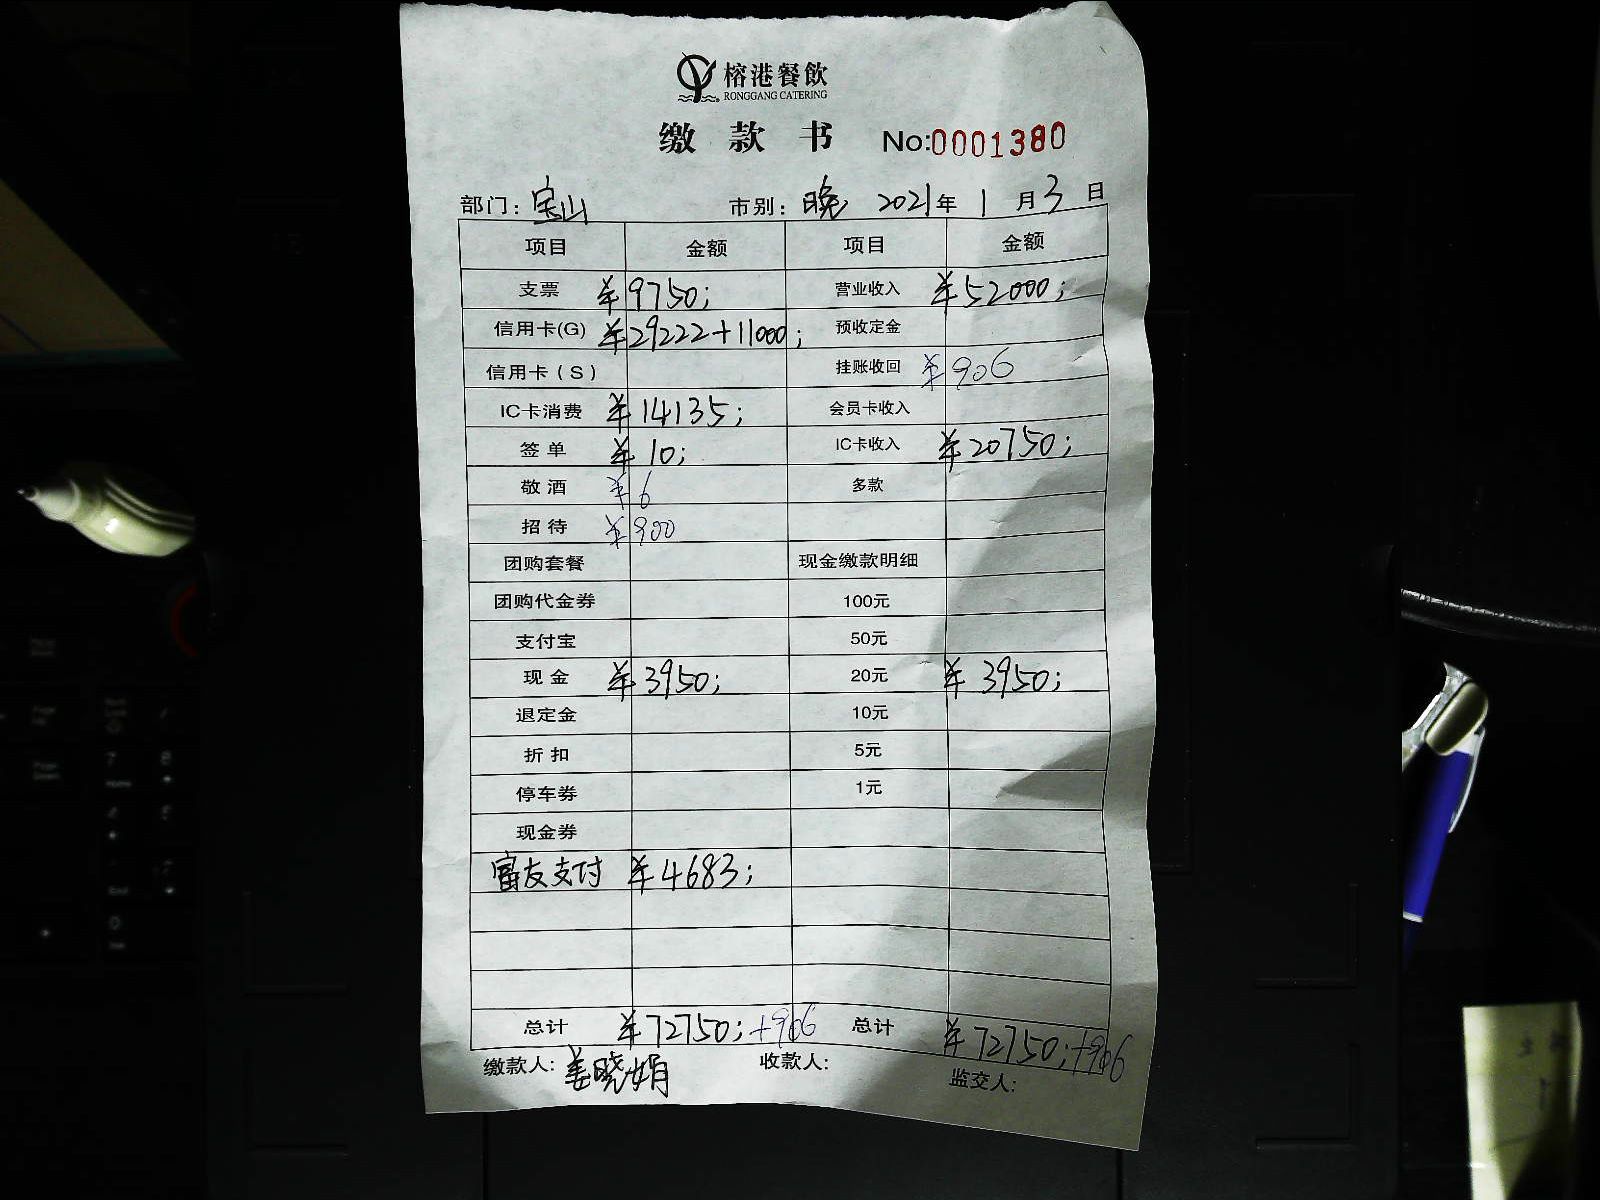 榕港餐飲
RONGGANG CATERING
缴款书 No:0001380
部门：宝山 市别：晚 2021年1月3日
项目 金额 项目 金额
支票 ¥9750; 营业收入 ¥52000;
信用卡(G) ¥29222+11000; 预收定金
信用卡（S） 挂账收回 ¥906
IC卡消费 ¥14135; 会员卡收入
签单 ¥10; IC卡收入 ¥20750;
敬酒 ¥6 多款
招待 ¥900
团购套餐 现金缴款明细
团购代金券 100元
支付宝 50元
现金 ¥3950; 20元 ¥3950;
退定金 10元
折扣 5元
停车券 1元
现金券
富友支付 ¥4683;
总计 ¥72750;+906 总计 ¥72750;+906
缴款人：姜晓娟 收款人： 监交人：